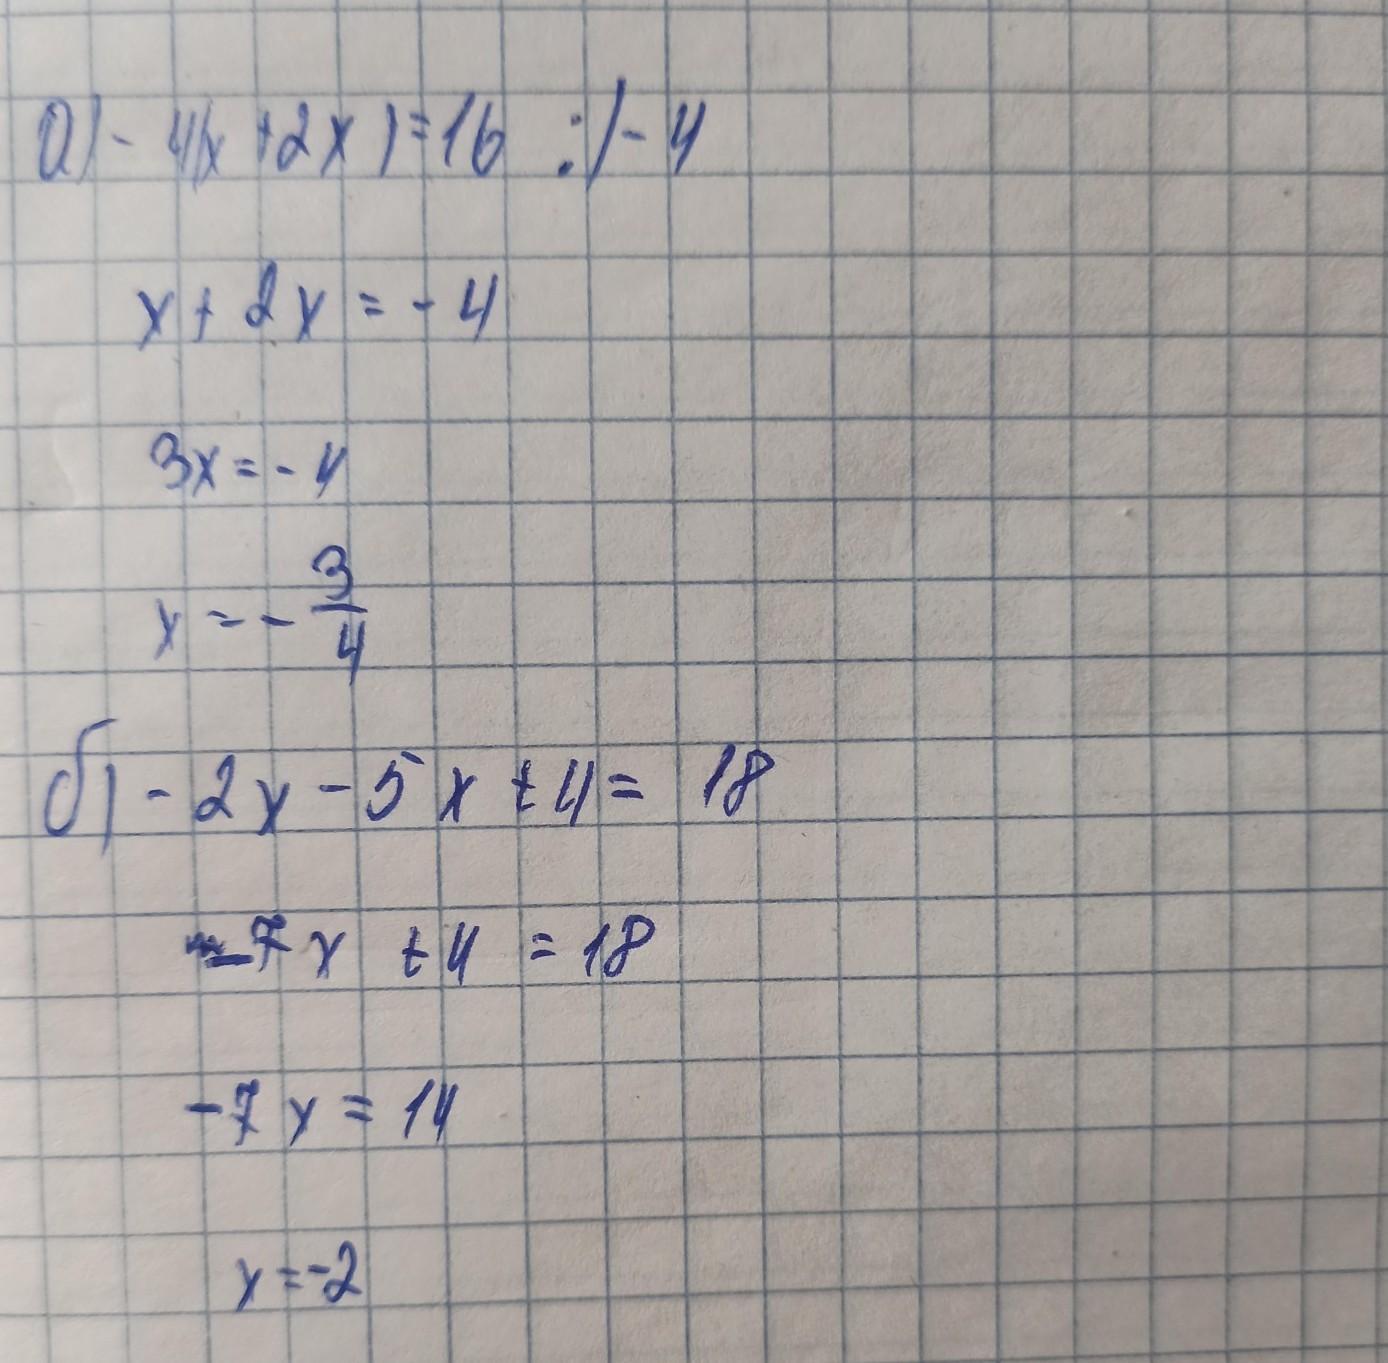 а) - 4(x + 2x) = 16 :) - 4
x + 2x = - 4
3x = - 4
x = - 3/4
б) - 2x - 5x + 4 = 18
- 7x + 4 = 18
- 7x = 14
x = -2